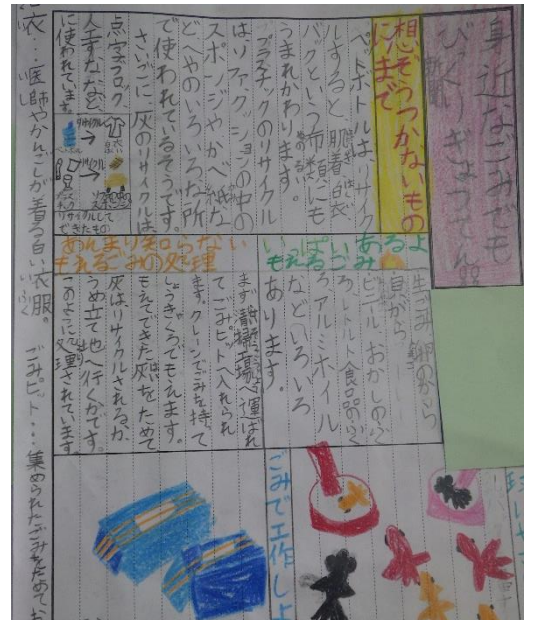 身近なごみでも
びっくりぎょうてん
想ぞうつかないもの
にまで
ペットボトルは、リサイク
ルすると、肌着、白衣、
バックという布類にも
うまれかわります。
プラスチックのリサイクル
はソファ、クッションの中の
スポンジやかべ紙な
どへやのいろいろな所
で使われているそうです。
さいごに灰のリサイクルは、
点字ブロック、
人工すななど
に使われています。
リサイクル
リサイクルして
できたもの
いっぱいあるよ
もえるごみ
生ごみ、卵のから
貝がら
ビニール、おかしのふく
ろ、レトルト食品のふく
ろ、アルミホイル
などいろいろ
あります。
あんまり知らない
もえるごみの処理
まず清掃工場へ運ばれ
てごみピットへ入れられ
ます。クレーンでごみを持って
しょうきゃくろでもえます。
もえてできた灰をためて
灰は、リサイクルされるか、
うめ立て地へ行くかです。
このように処理されています。
ごみで工作しよ
白衣…医師やかんごしが着る白い衣服。
いし
いふく
ごみピット…集められたごみをためてお